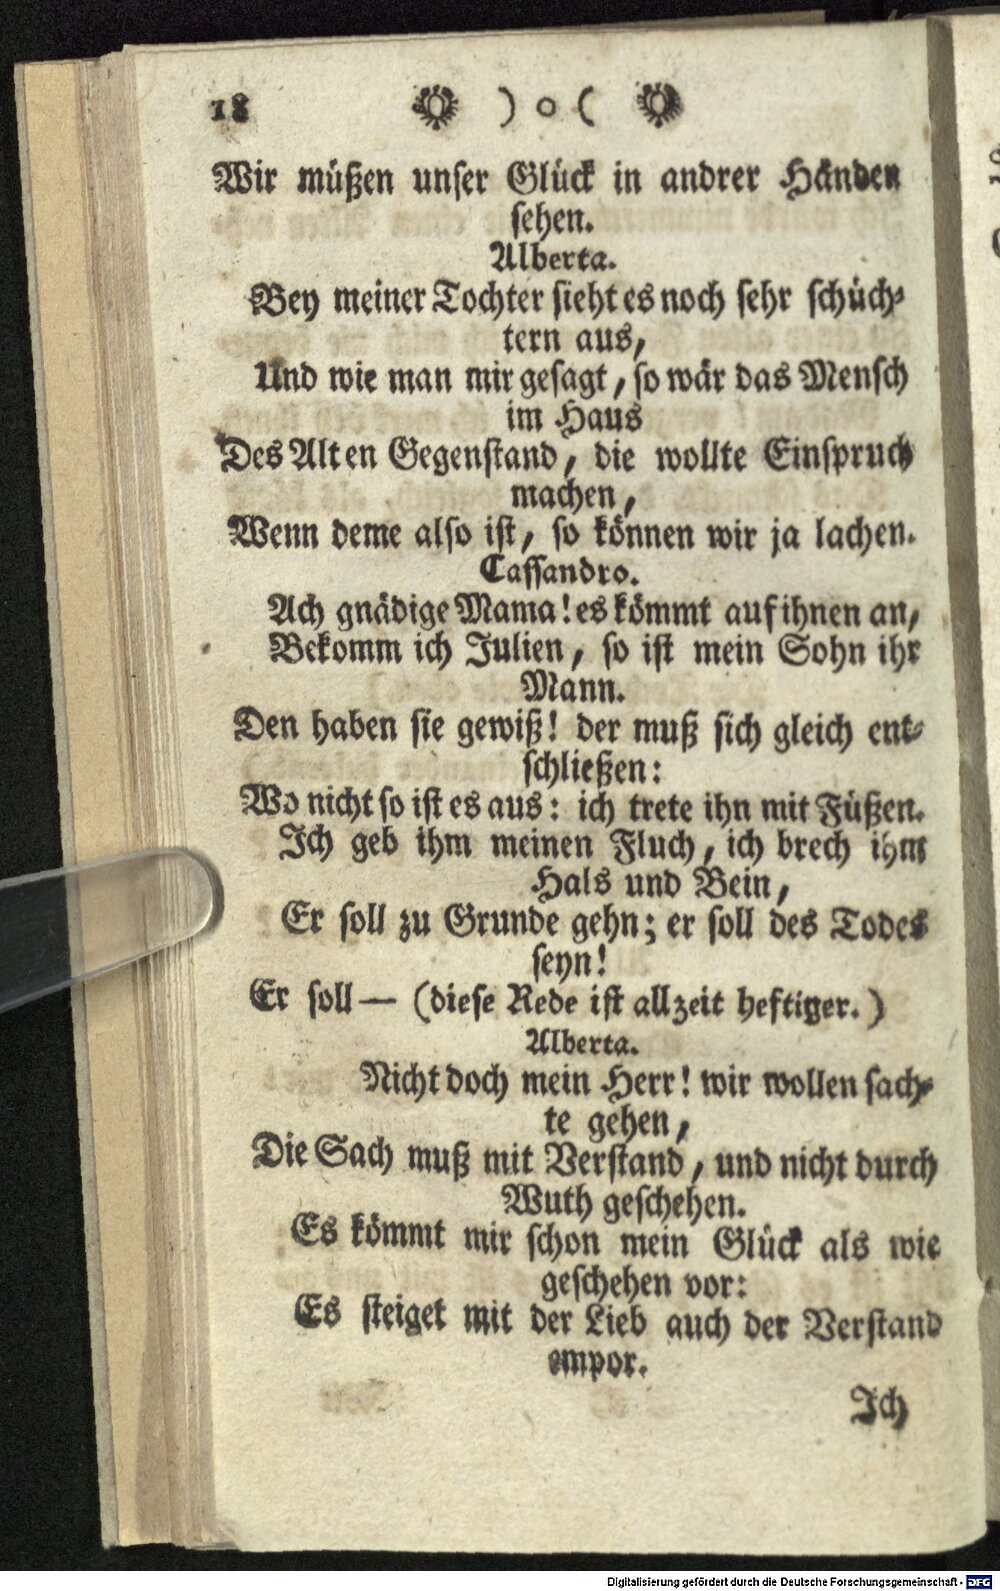 18 ) o (
Wir müßen unser Glück in andrer Händen
sehen.
Alberta.
Bey meiner Tochter sieht es noch sehr schüch-
tern aus,
Und wie man mir gesagt, so wär das Mensch
im Haus
Des Alten Gegenstand, die wollte Einspruch
machen,
Wenn deme also ist, so können wir ja lachen.
Cassandro.
Ach gnädige Mama! es kömmt auf ihnen an,
Bekomm ich Julien, so ist mein Sohn ihr
Mann.
Den haben sie gewiß! der muß sich gleich ent-
schließen:
Wo nicht so ist es aus: ich trete ihn mit Füßen.
Ich geb ihm meinen Fluch, ich brech ihm
Hals und Bein,
Er soll zu Grunde gehn; er soll des Todes
seyn!
Er soll — (diese Rede ist allzeit heftiger.)
Alberta.
Nicht doch mein Herr! wir wollen sach-
te gehen,
Die Sach muß mit Verstand, und nicht durch
Wuth geschehen.
Es kömmt mir schon mein Glück als wie
geschehen vor:
Es steiget mit der Lieb auch der Verstand
empor.
Ich
Digitalisierung gefördert durch die Deutsche Forschungsgemeinschaft - DFG